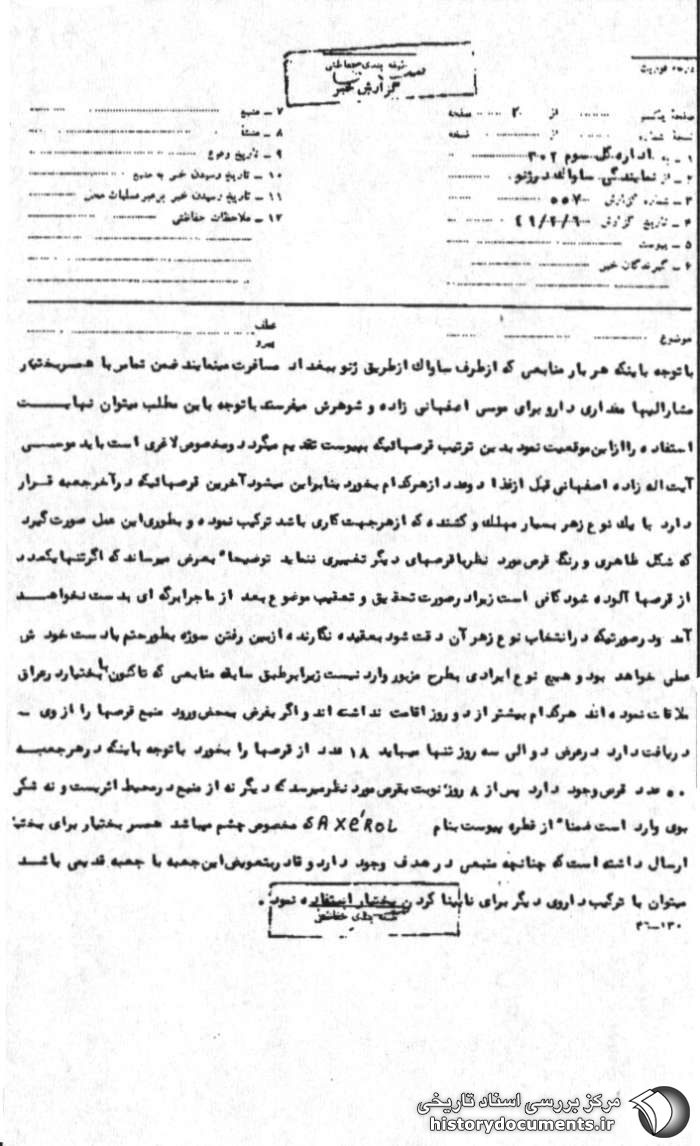 درجه فوریت
طبقه بندی حفاظتی
گزارش خبر
صفحه یکم از ۲۰ صفحه
نسخه شماره از نسخه
۱ـ به اداره کل سوم ۳۰۲
۲ـ از نمایندگی ساواک در ژنو
۳ـ شماره گزارش ۵۵۷
۴ـ تاریخ گزارش
۵ـ پیوست
۶ـ گیرندگان خبر
۷ـ منبع
۸ـ منشأ
۹ـ تاریخ وقوع
۱۰ـ تاریخ رسیدن خبر به منبع
۱۱ـ تاریخ رسیدن خبر برهبر عملیات محل
۱۲ـ ملاحظات حفاظتی
موضوع
عطف
پیرو
با توجه باینکه هر بار منابعی که از طرف ساواک از طریق ژنو ببغداد مسافرت مینمایند ضمن تماس با همسر بختیار
مشارالیها مقداری دارو برای موسی اصفهانی زاده و شوهرش میفرستد با توجه باین مطلب میتوان نهایت
استفاده را از این موقعیت نمود بدین ترتیب قرصهائیکه بپیوست تقدیم میگردد و مخصوص لاغری است باید موسی
آیت اله زاده اصفهانی قبل از غذا دو عدد از هر کدام بخورد بنابراین میشود آخرین قرصهائیکه در آخر جعبه قرار
دارد با یک نوع زهر بسیار مهلک و کشنده که از هر جهت کاری باشد ترکیب نموده و بطوری این عمل صورت گیرد
که شکل ظاهری و رنگ قرص مورد نظر با قرصهای دیگر تغییری ننماید توضیحا" بعرض میرساند که اگر تنها یکعدد
از قرصها آلوده شود کافی است زیرا در صورت تحقیق و تعقیب موضوع بعد از ماجرا برگه ای بدست نخواهد
آمد و در صورتیکه در انتخاب نوع زهر آن دقت شود بعقیده نگارنده از بین رفتن سوژه بطور حتم با دست خودش
عملی خواهد بود و هیچ نوع ایرادی بطرح مزبور وارد نیست زیرا بر طبق سابقه منابعی که تاکنون با بختیار در عراق
ملاقات نموده اند هر کدام بیشتر از دو روز اقامت نداشته اند و اگر بفرض بمحض ورود منبع قرصها را از وی ـ
دریافت دارد در عرض دو الی سه روز تنها میباید ۱۸ عدد از قرصها را بخورد با توجه باینکه در هر جعبه
۵۰ عدد قرص وجود دارد پس از ۸ روز نوبت بقرص مورد نظر میرسد که دیگر نه از منبع در محیط اثریست و نه شکی
بوی وارد است ضمنا" از قطره پیوست بنام SAXÉROL که مخصوص چشم میباشد همسر بختیار برای بختیار
ارسال داشته است که چنانچه منبعی در هدف وجود دارد و قادر بتعویض این جعبه با جعبه قدیمی باشد
میتوان با ترکیب داروی دیگر برای نابینا کردن بختیار استفاده نمود.
طبقه بندی حفاظتی
۳۶ـ۱۳۰
مرکز بررسی اسناد تاریخی
historydocuments.ir